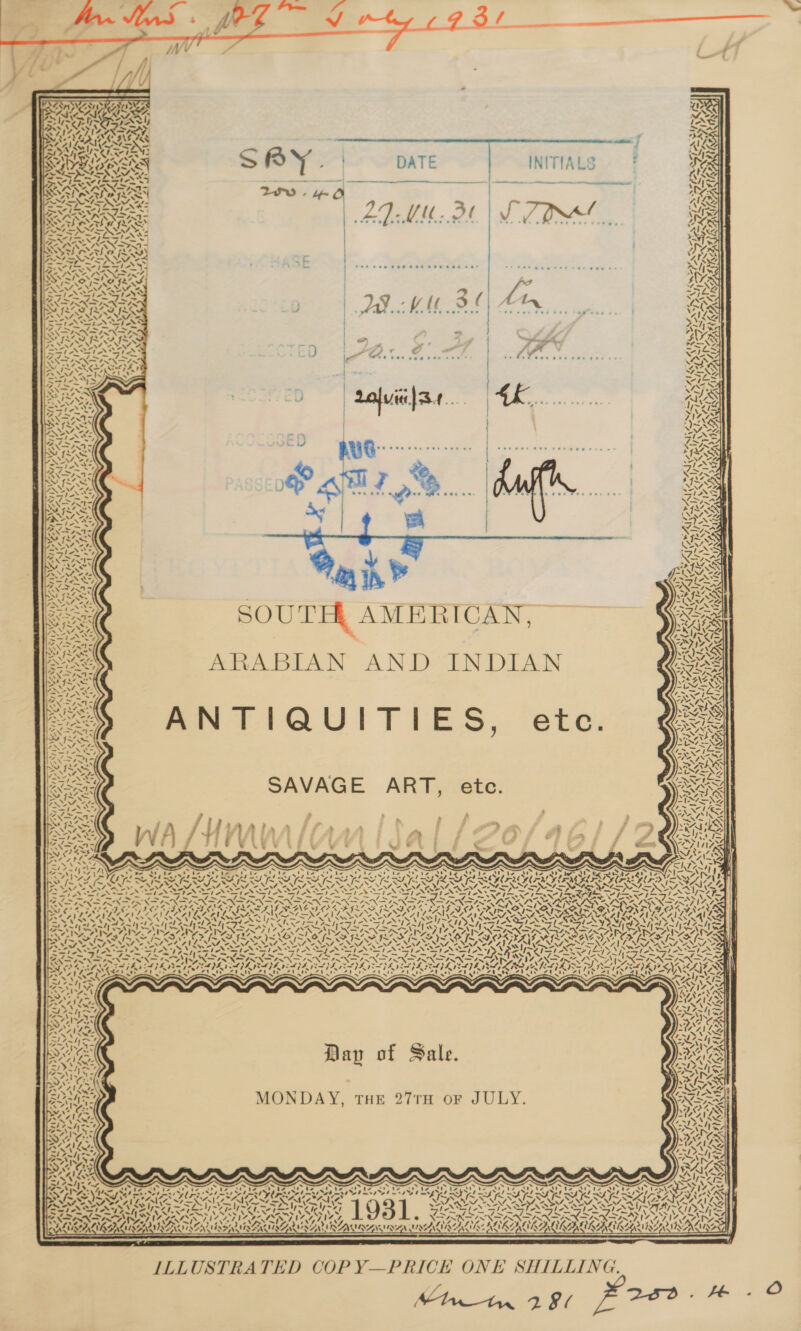 July 1931
SBY. DATE INITIALS
200.4.0 27.VII.31
CHASE
28.VII.31
ECTED
20/viii/31
ACCESSED AUG
PASSED
SOUTH AMERICAN,
ARABIAN AND INDIAN
ANTIQUITIES, etc.
SAVAGE ART, etc.
WA/HMM/CM/Sal/20/461/2
Day of Sale.
MONDAY, THE 27TH OF JULY.
1931.
ILLUSTRATED COPY—PRICE ONE SHILLING.
281 £200.4.0